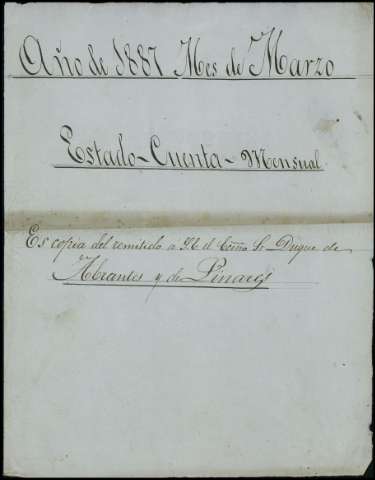 Año de 1887 Mes de Marzo
Estado-Cuenta-Mensual
Es copia del remitido a el Exmo Sr Duque de
Abrantes y de Linares